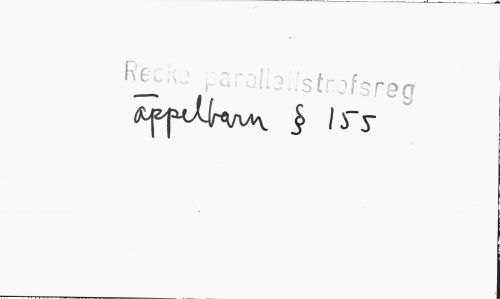 Recke parallellstrofsreg
äppelbarn § 155